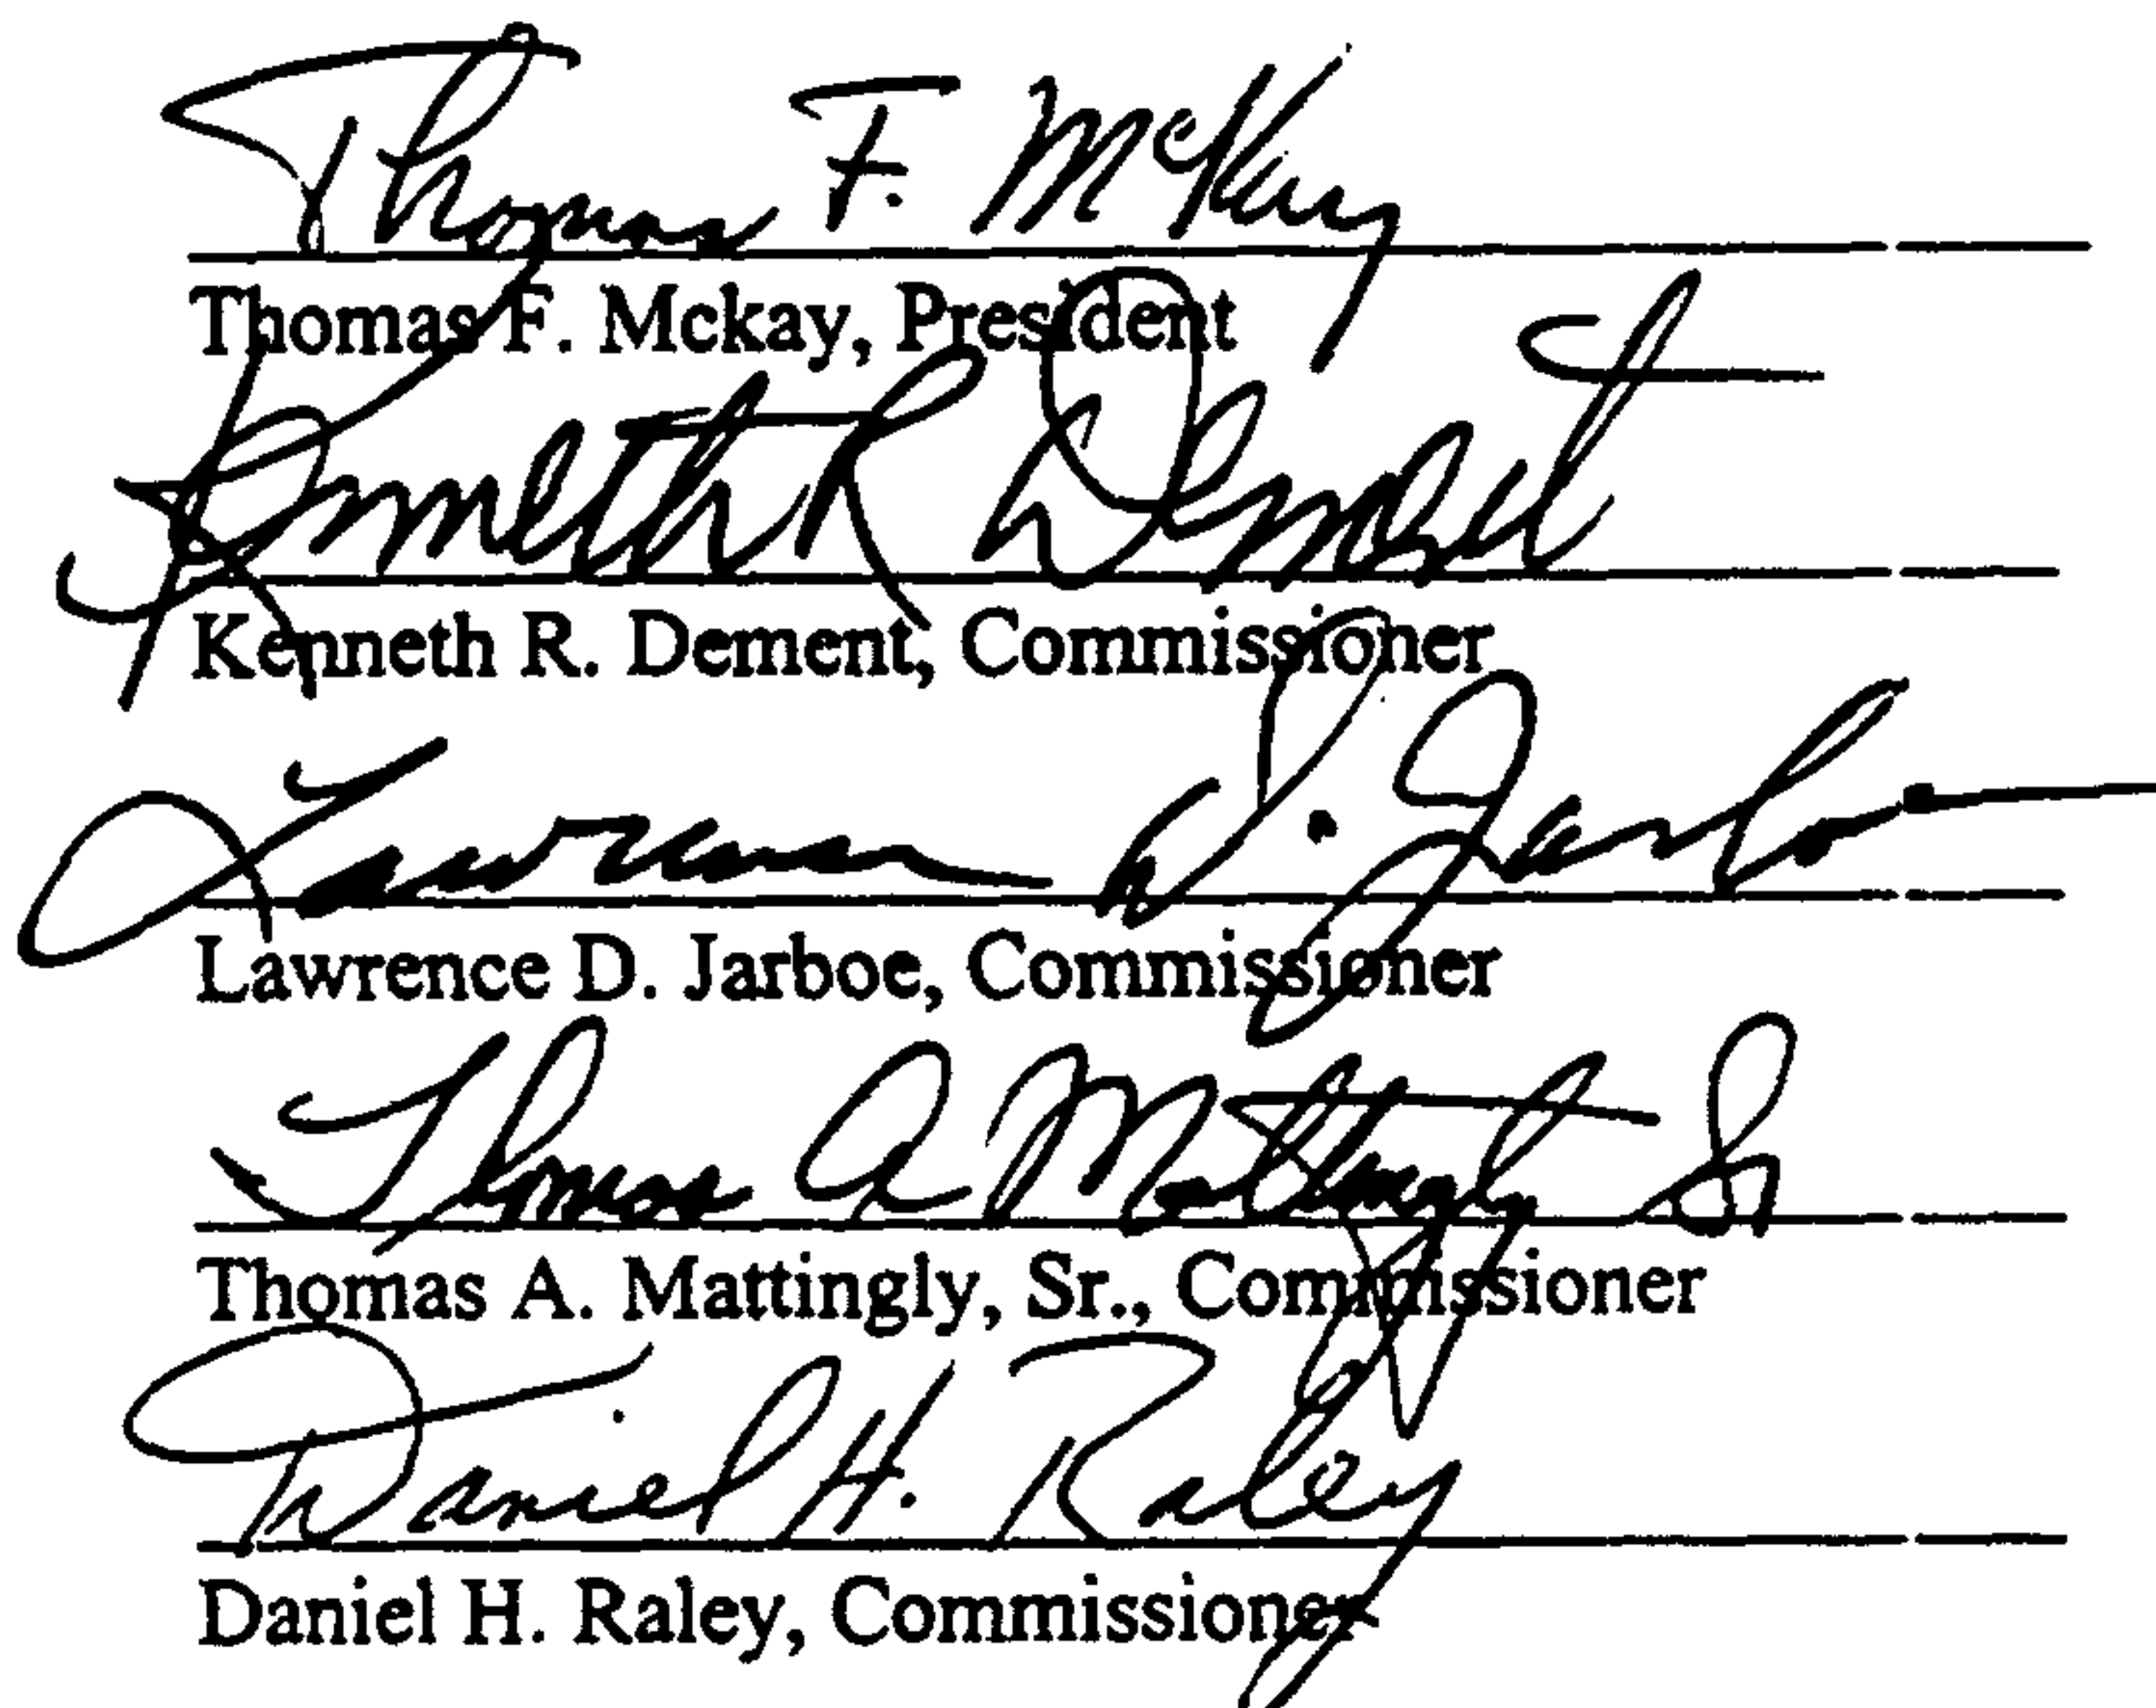 Thomas F. McKay
Thomas F. Mckay, President
Kenneth R Dement
Kenneth R. Dement, Commissioner
Lawrence D. Jarboe
Lawrence D. Jarboe, Commissioner
Thomas A Mattingly Sr
Thomas A. Mattingly, Sr., Commissioner
Daniel H. Raley
Daniel H. Raley, Commissioner